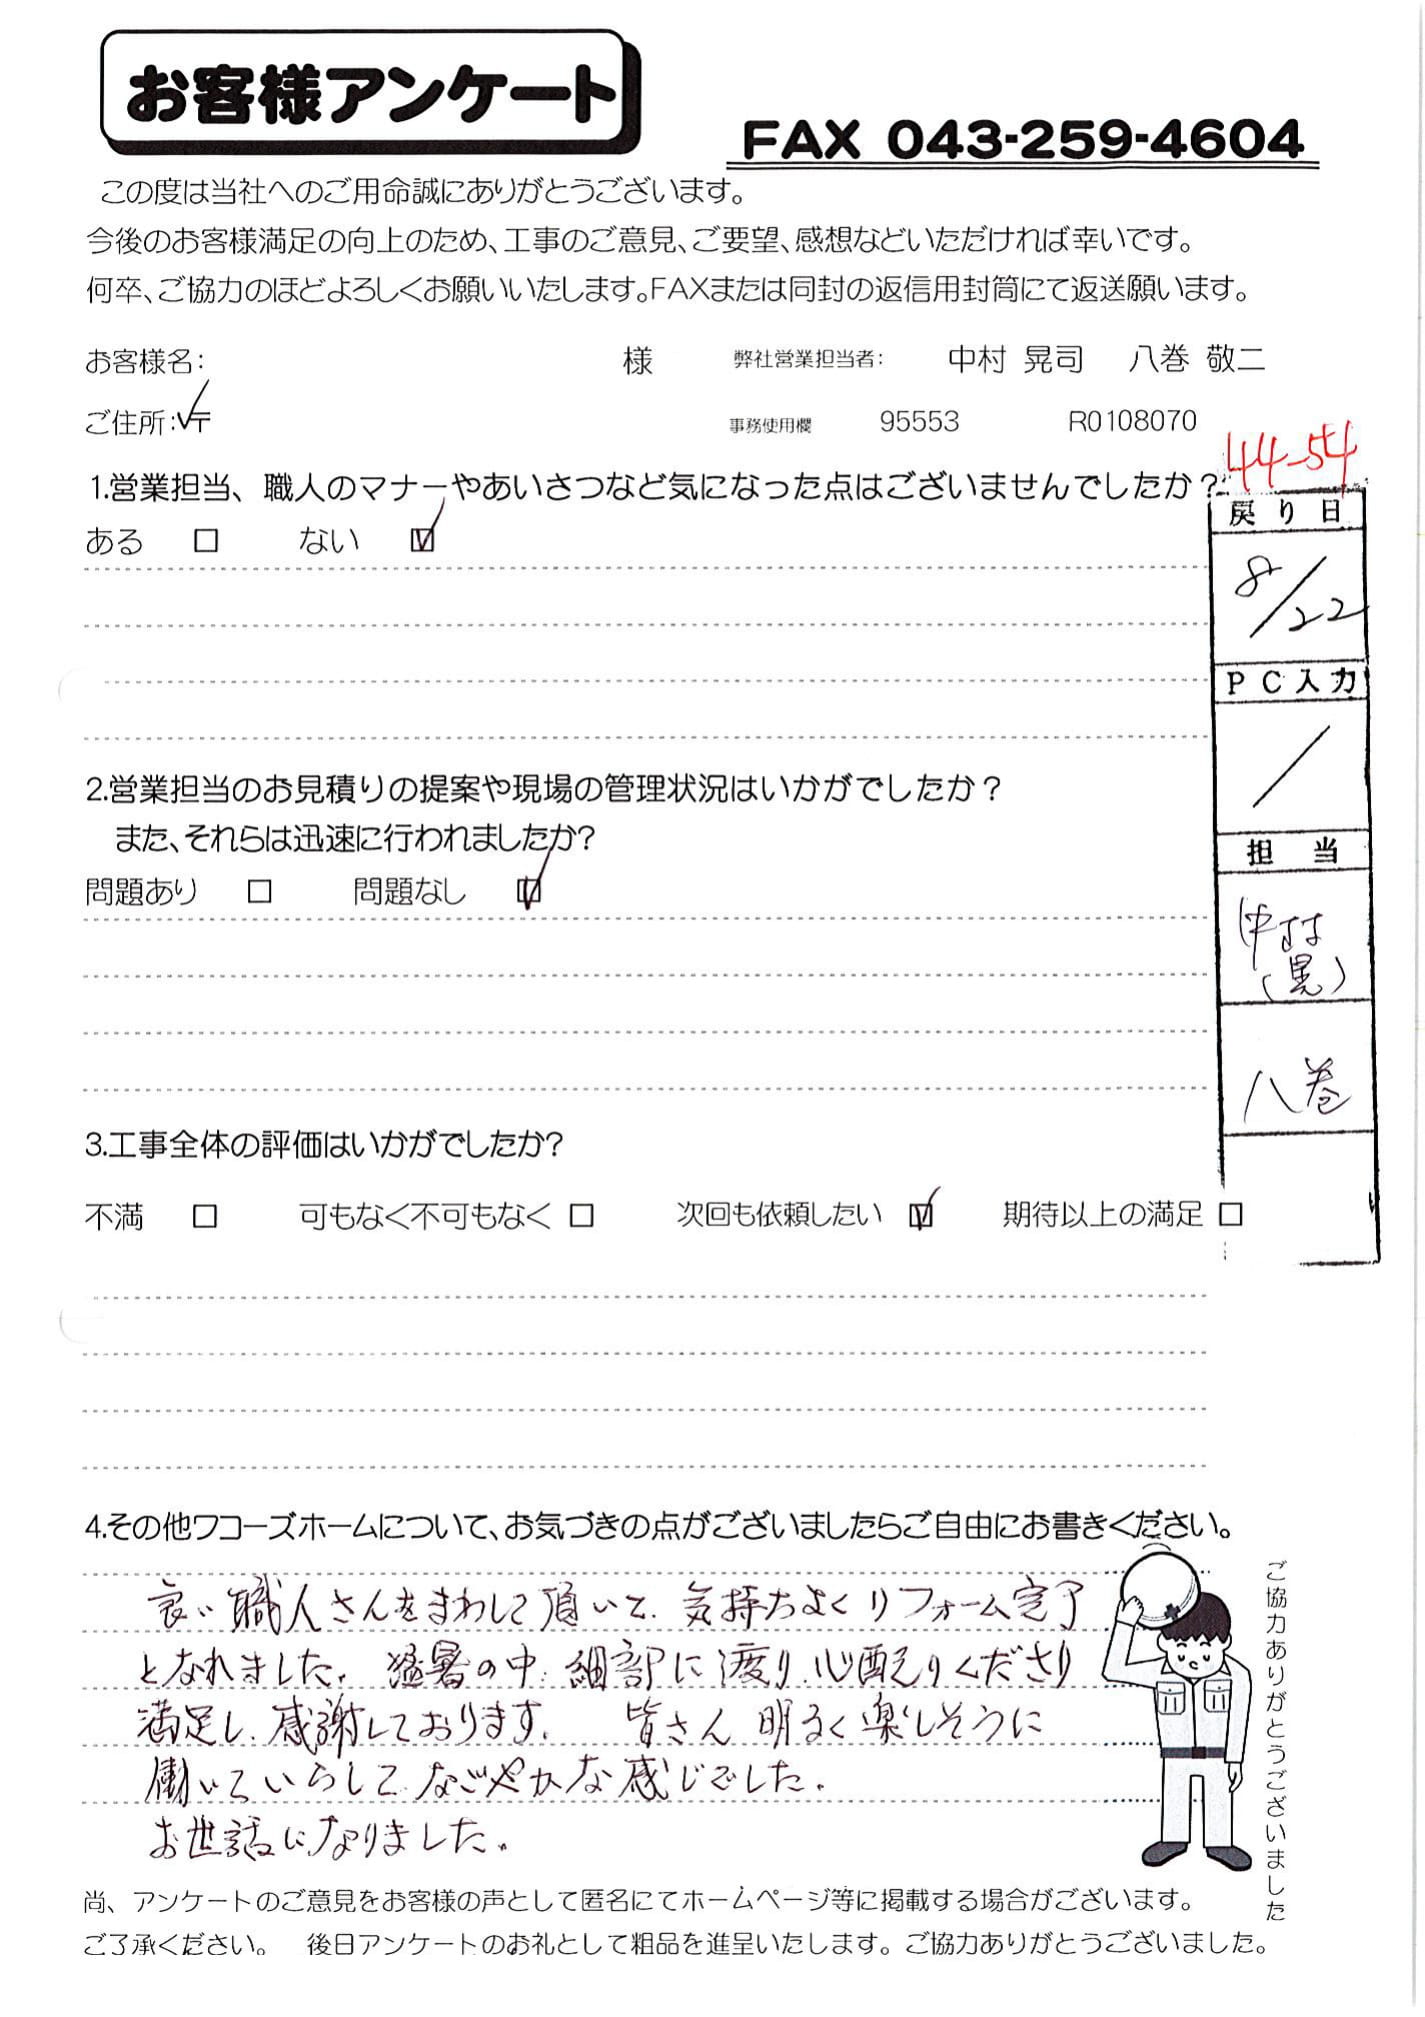 お客様アンケート
FAX 043-259-4604
この度は当社へのご用命誠にありがとうございます。
今後のお客様満足の向上のため、工事のご意見、ご要望、感想などいただければ幸いです。
何卒、ご協力のほどよろしくお願いいたします。FAXまたは同封の返信用封筒にて返送願います。
お客様名: 様 弊社営業担当者: 中村 晃司 八巻 敬二
ご住所:〒 事務使用欄 95553 R0108070
44-54
1.営業担当、職人のマナーやあいさつなど気になった点はございませんでしたか?
ある □ ない ☑
戻り日
8/22
PC入力
/
2.営業担当のお見積りの提案や現場の管理状況はいかがでしたか?
また、それらは迅速に行われましたか?
問題あり □ 問題なし ☑
担当
中村
八巻
3.工事全体の評価はいかがでしたか?
不満 □ 可もなく不可もなく □ 次回も依頼したい ☑ 期待以上の満足 □
4.その他ワコーズホームについて、お気づきの点がございましたらご自由にお書きください。
良い職人さんをまわして頂いて、気持ちよくリフォーム完了
となれました。猛暑の中、細部に渡り、心配りくださり
満足し、感謝しております。 皆さん 明るく楽しそうに
働いていらして なごやかな感じでした。
お世話になりました。
ご協力ありがとうございました
尚、アンケートのご意見をお客様の声として匿名にてホームページ等に掲載する場合がございます。
ご了承ください。 後日アンケートのお礼として粗品を進呈いたします。ご協力ありがとうございました。